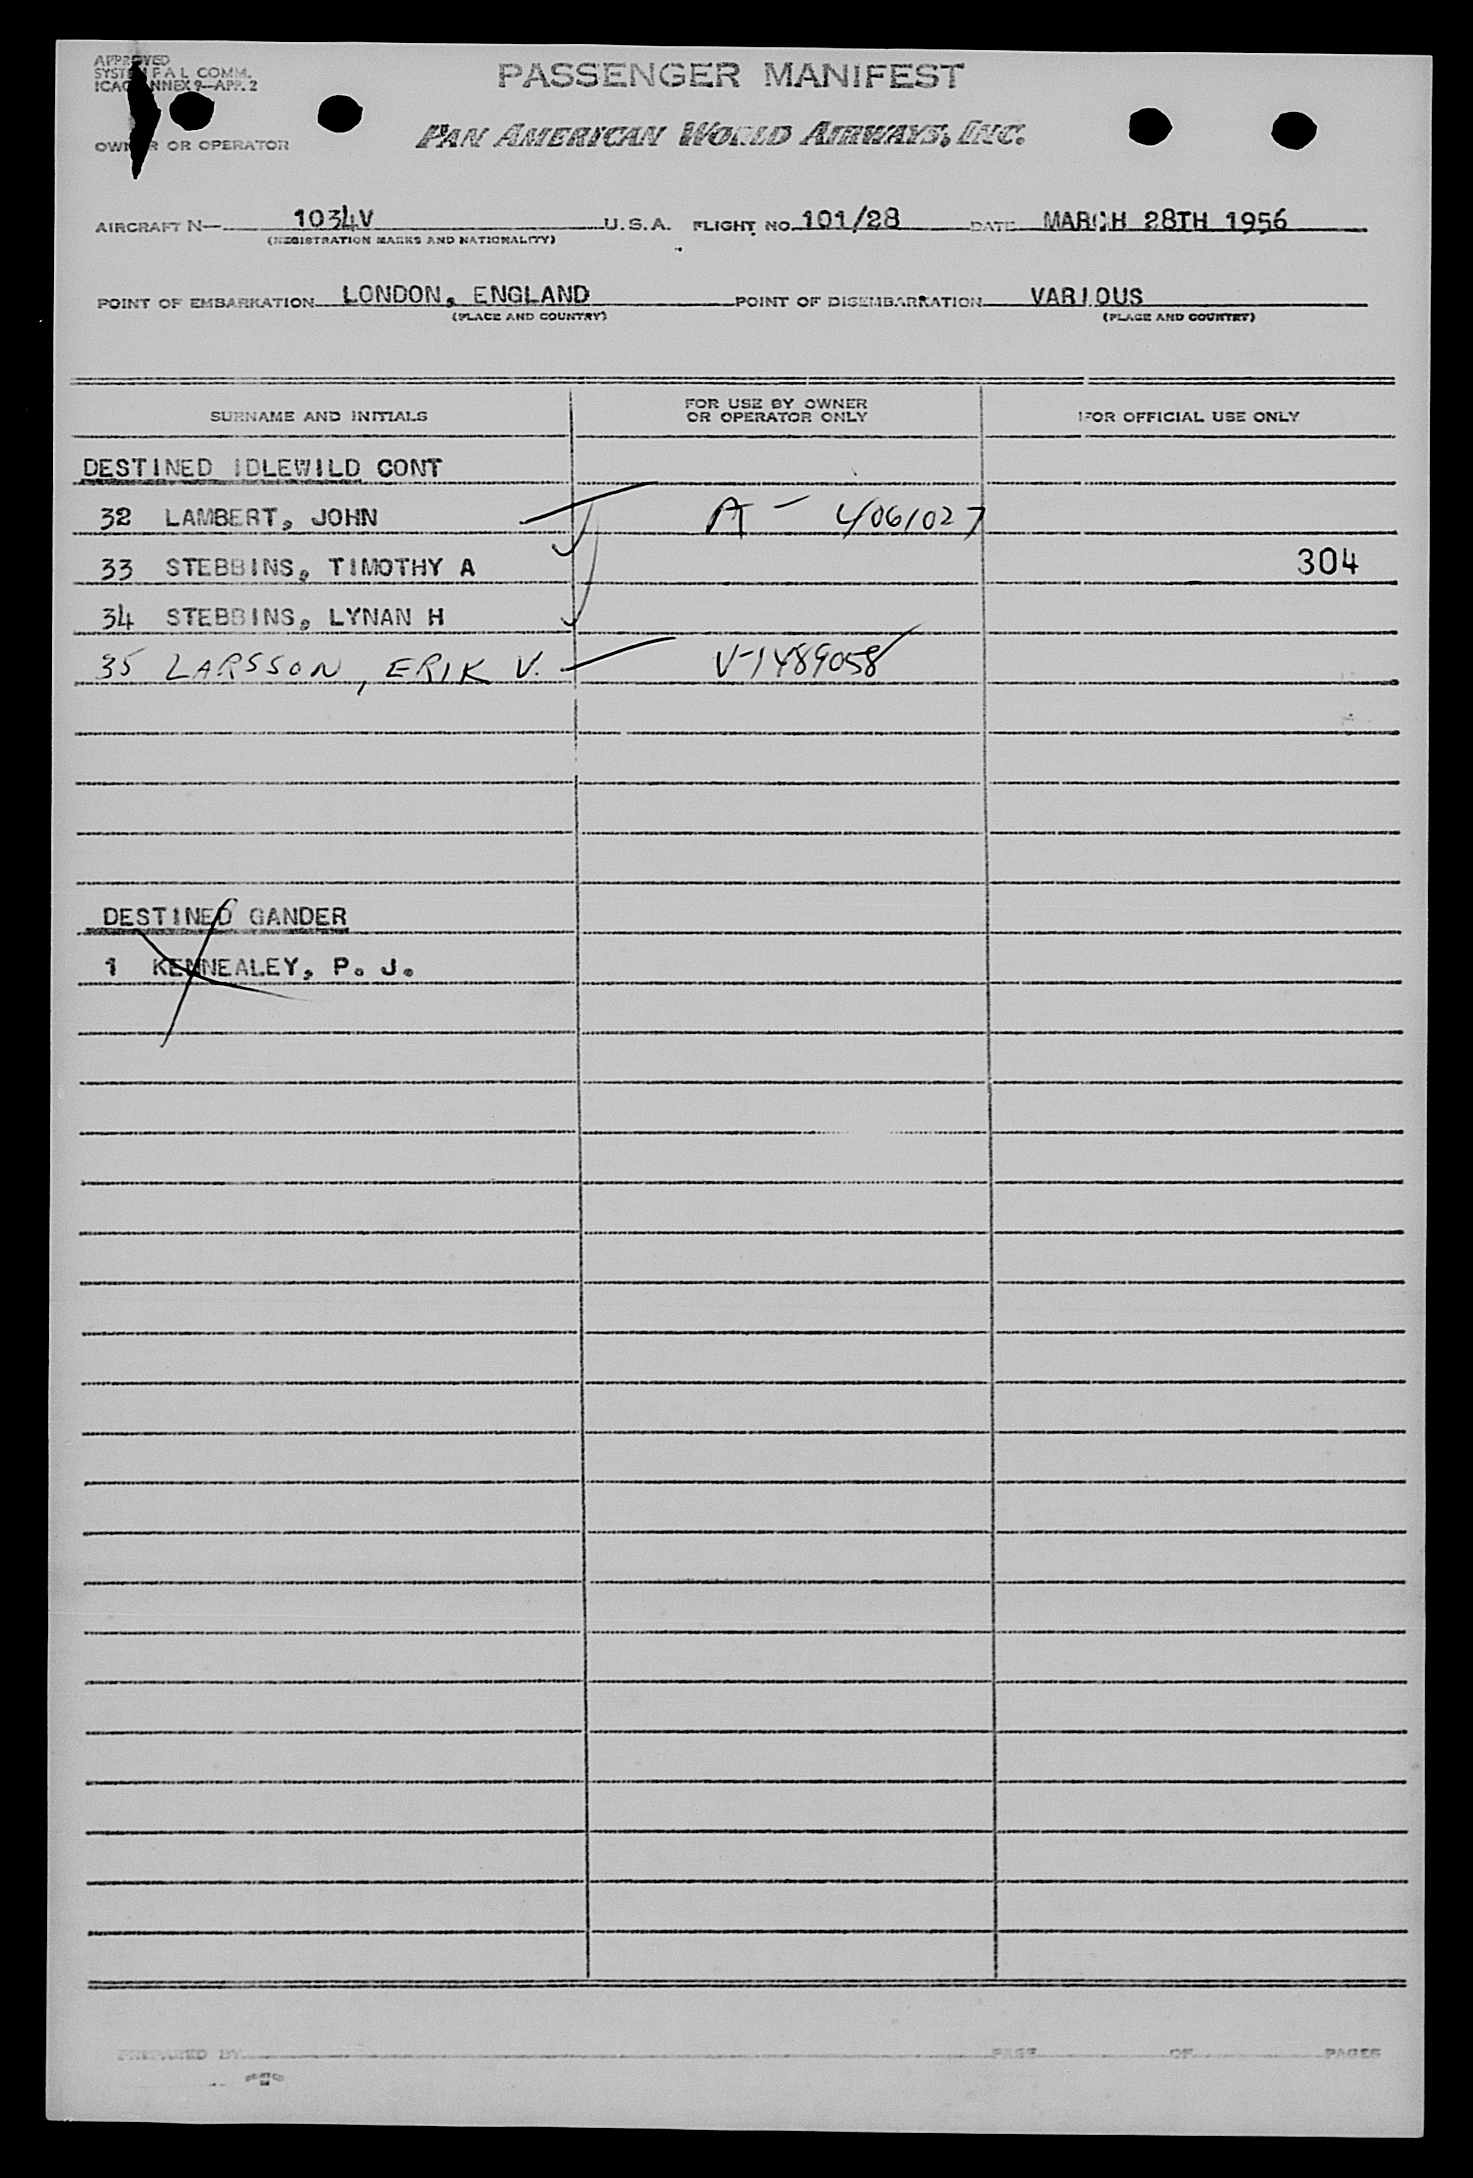 APPROVED
SYSTEM F A L COMM.
ICAO ANNEX 9—APP. 2
PASSENGER MANIFEST
OWNER OR OPERATOR
PAN AMERICAN WORLD AIRWAYS, INC.
AIRCRAFT N— 1034V U.S.A. FLIGHT NO. 101/28 DATE MARCH 28TH 1956
(REGISTRATION MARKS AND NATIONALITY)
POINT OF EMBARKATION LONDON, ENGLAND POINT OF DISEMBARKATION VARIOUS
(PLACE AND COUNTRY) (PLACE AND COUNTRY)
SURNAME AND INITIALS FOR USE BY OWNER OR OPERATOR ONLY FOR OFFICIAL USE ONLY
DESTINED IDLEWILD CONT
32 LAMBERT, JOHN A- 4061027
33 STEBBINS, TIMOTHY A 304
34 STEBBINS, LYNAN H
35 LARSSON, ERIK V. V-1489058
DESTINED GANDER
1 KENNEALEY, P. J.
PREPARED BY PAGE OF PAGES